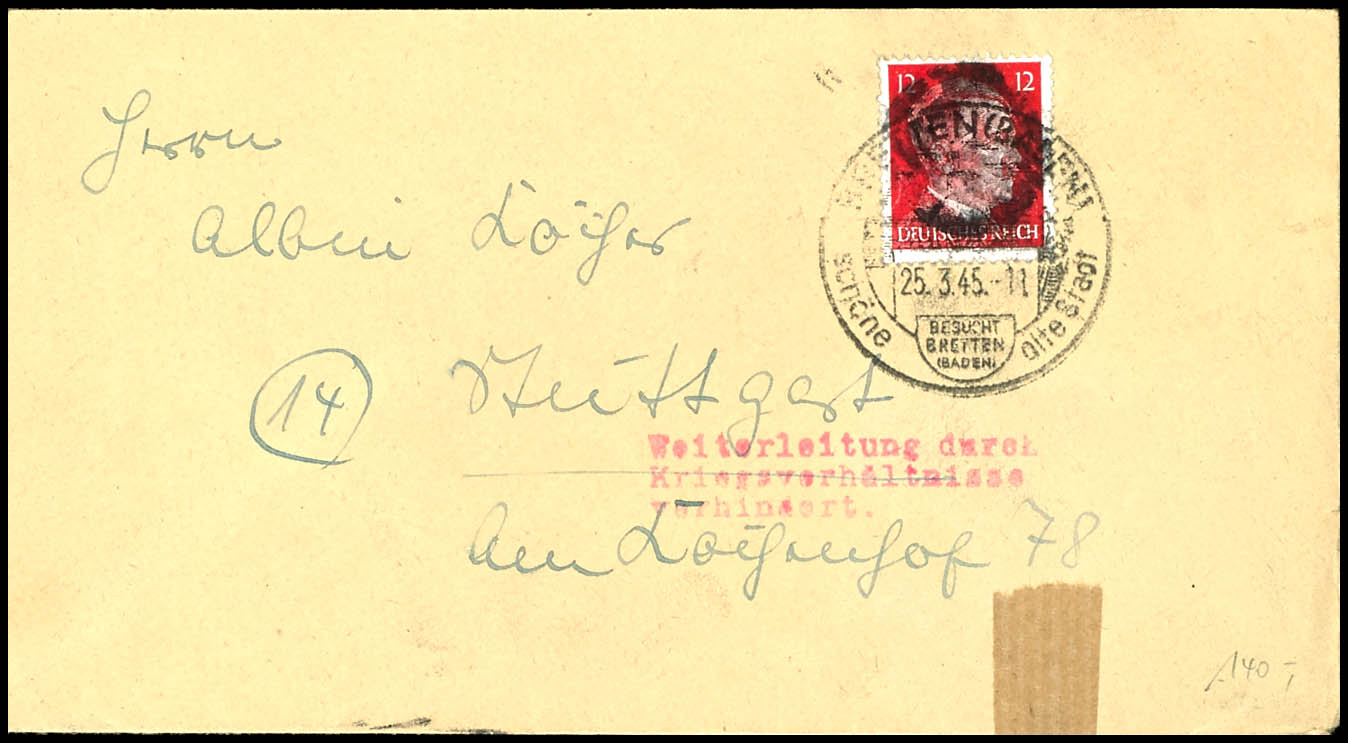 Herrn
12 12
Albin
DEUTSCHES REICH
schöne alte Stadt
25. 3.45.-11
BESUCHT
BRETTEN
(BADEN)
14 Stuttgart
Weiterleitung durch
Kriegsverhältnisse
verhindert.
Am 78
140,-